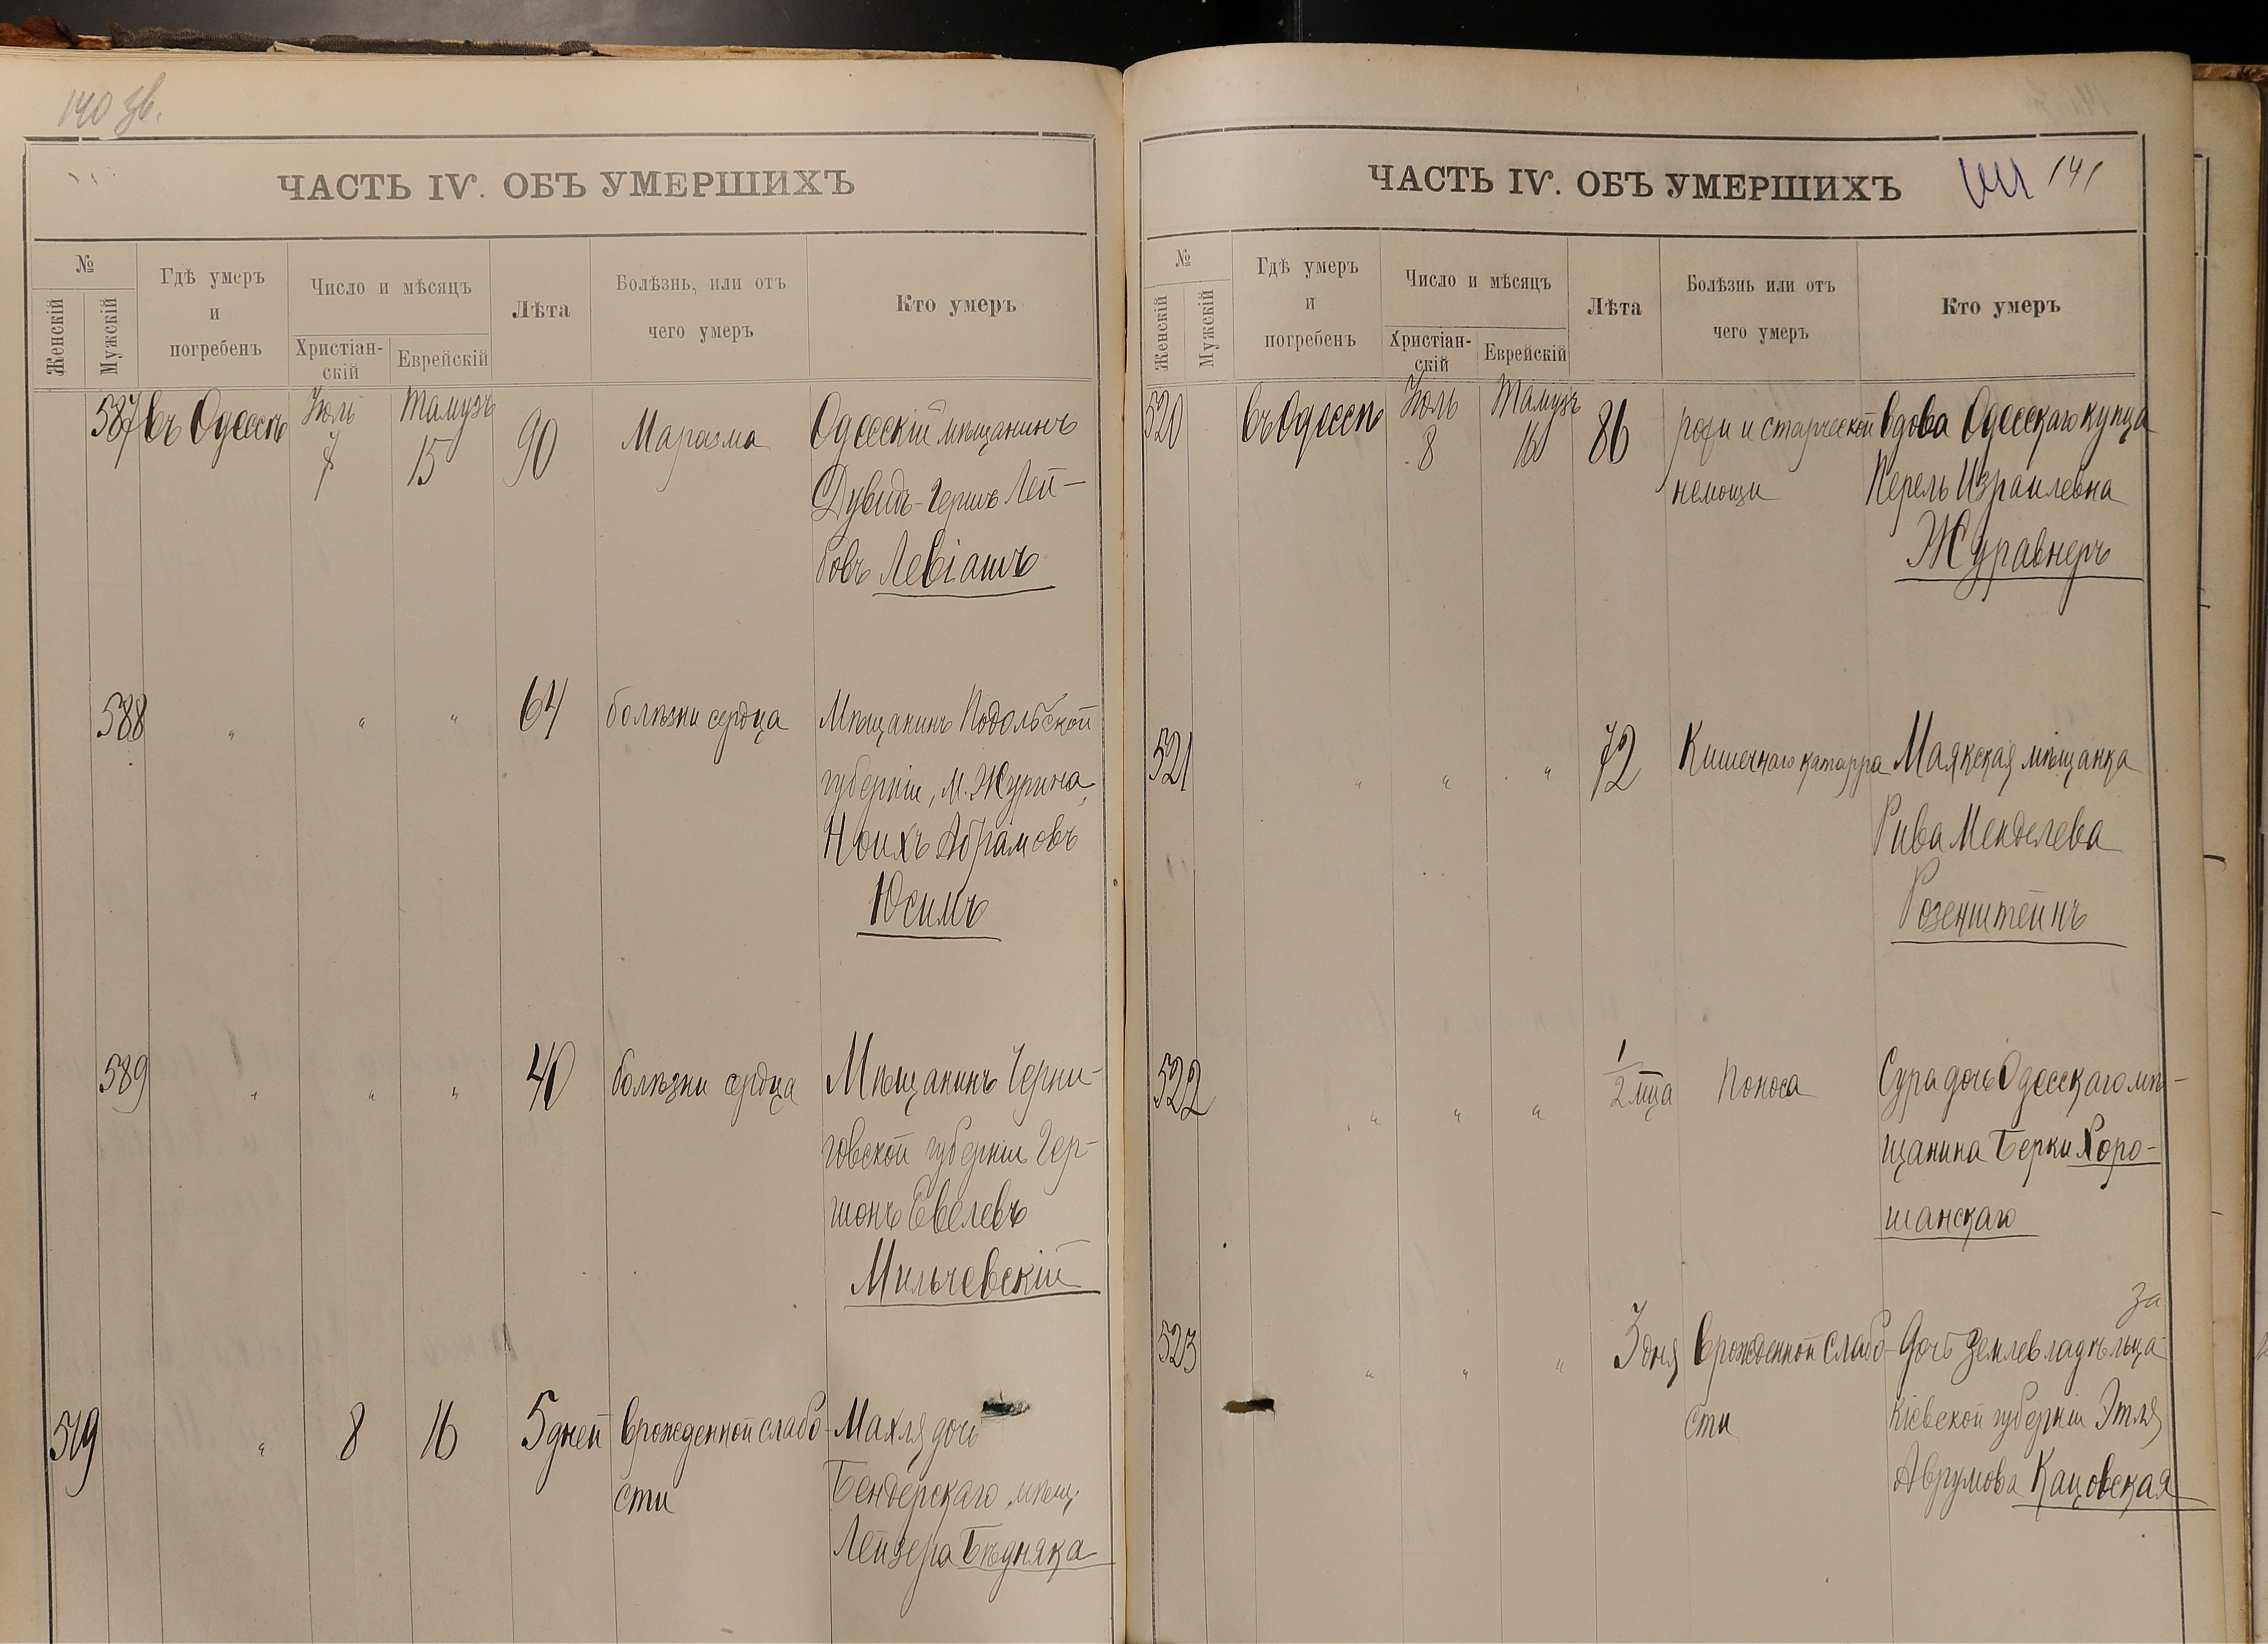 140 зв.
ЧАСТЬ IV. ОБЪ УМЕРШИХЪ
№
Женскій
Мужскій
Гдѣ умеръ
и
погребенъ
Число и мѣсяцъ
Христіан-
скій
Еврейскій
Лѣта
Болѣзнь, или отъ
чего умеръ
Кто умеръ
587 въ Одессѣ Іюль 7 Тамузъ 15 90 Маразма Одесскій мѣщанинъ
Дувидъ-Гершъ Лей-
бовъ Левіашъ
588 " " " 64 болѣзни сердца Мѣщанинъ Подольской
губерніи, М. Журина,
Ноихъ Абрамовъ
Юсимъ
589 " " " 40 болѣзни сердца Мѣщанинъ Черни-
говской губерніи Гер-
шонъ Евелевъ
Мильчевскій
519 " 8 16 5 дней врожденной слабо- Махля дочь
сти Бендерскаго мѣщ.
Лейзера Бѣдняка
141
ЧАСТЬ IV. ОБЪ УМЕРШИХЪ
№
Женскій
Мужскій
Гдѣ умеръ
и
погребенъ
Число и мѣсяцъ
Христіан-
скій
Еврейскій
Лѣта
Болѣзнь или отъ
чего умеръ
Кто умеръ
520 въ Одессѣ Іюль 8 Тамузъ 16 86 рожи и старческой вдова Одесскаго купца
немощи Перель Израилевна
Журавнеръ
521 " " " 72 Кишечнаго катарра Маякская мѣщанка
Рива Менделева
Розенштейнъ
522 " " " 1/2 мца Поноса Сура дочь Одесскаго мѣ-
щанина Берки Хоро-
шанскаго
523 " " " 3 дня врожденной слабо- дочь землевладѣльца
сти Кіевской губерніи Этля
Аврумова Кацовская